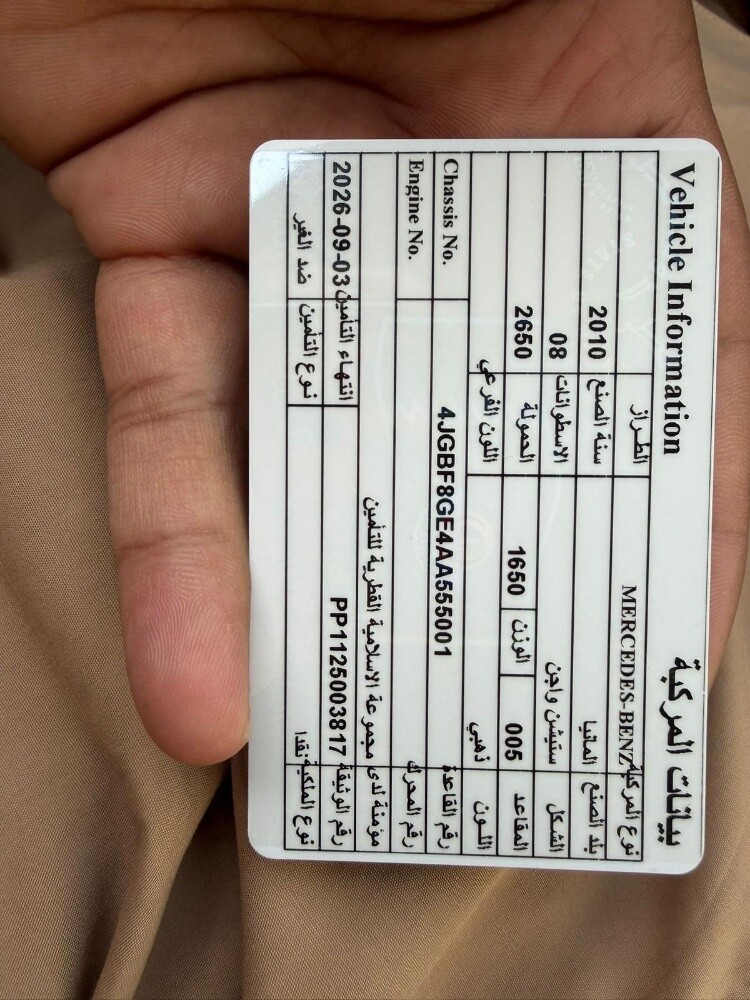 Vehicle Information بيانات المركبة
نوع المركبة MERCEDES-BENZ الطراز
بلد الصنع المانيا سنة الصنع 2010
الشكل ستيشن واجن الاسطوانات 08
المقاعد 005 الوزن 1650 الحمولة 2650
اللون ذهبي اللون الفرعي
رقم القاعدة 4JGBF8GE4AA555001 Chassis No.
رقم المحرك Engine No.
مؤمنة لدى مجموعة الاسلامية القطرية للتأمين
رقم الوثيقة PP1125003817 انتهاء التأمين 2026-09-03
نوع الملكية نقدا نوع التأمين ضد الغير